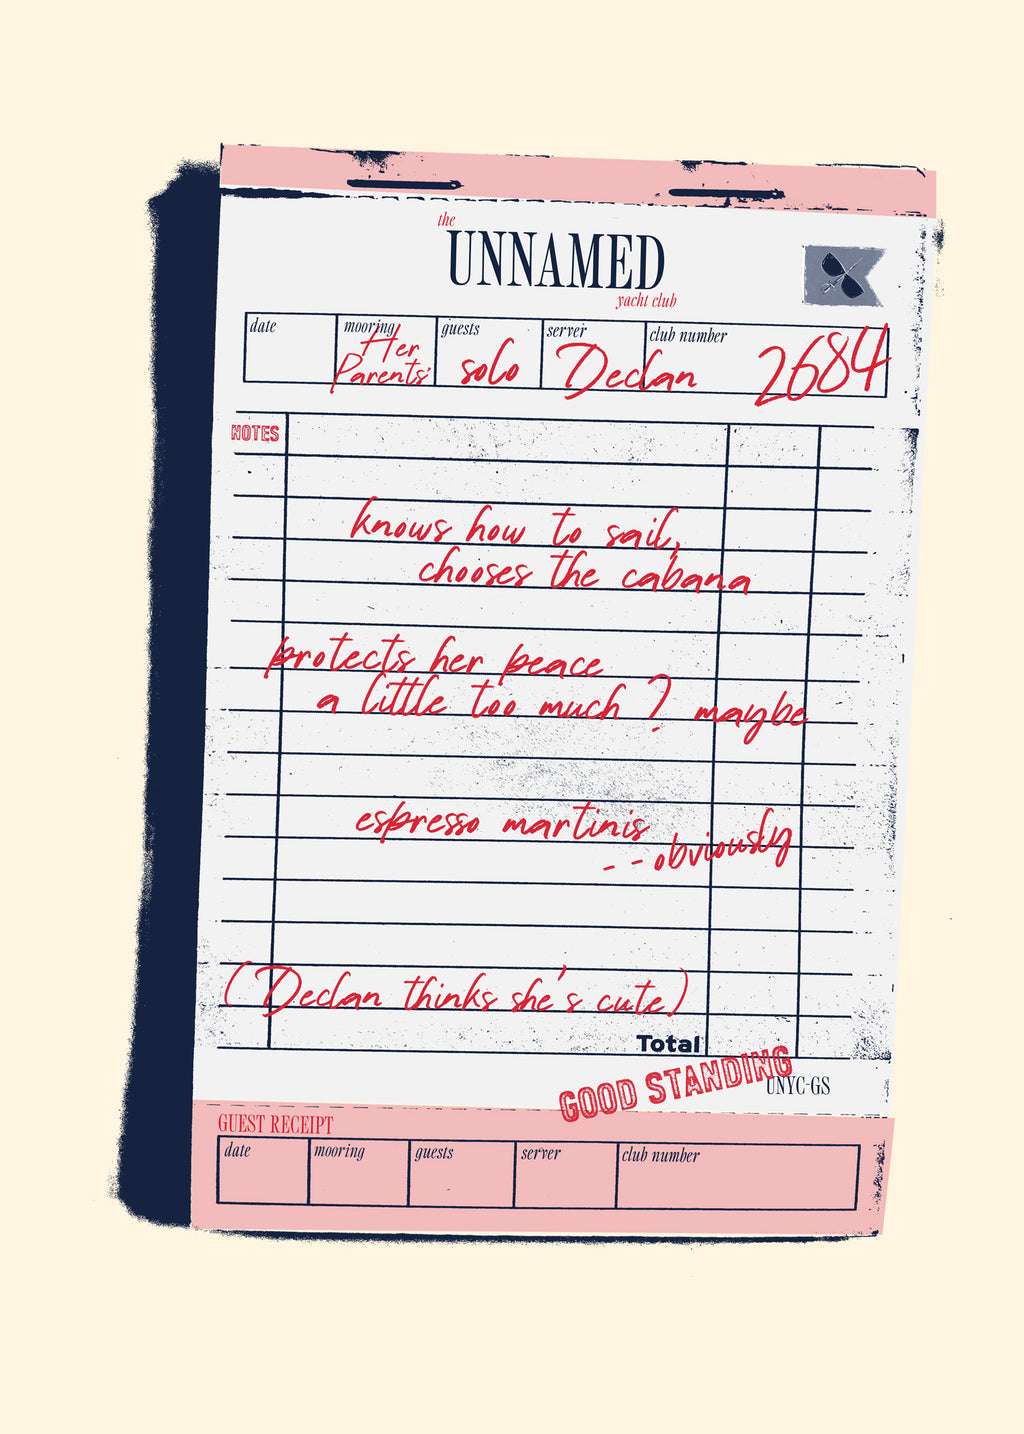 the
UNNAMED
yacht club
date mooring guests server club number
Her Parents' solo Declan 2684
NOTES
knows how to sail,
chooses the cabana
protects her peace
a little too much ? maybe
espresso martinis
-- obviously
(Declan thinks she's cute)
Total
GOOD STANDING
UNYC-GS
GUEST RECEIPT
date mooring guests server club number